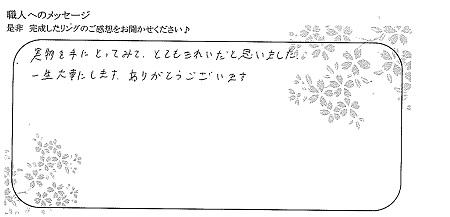 職人へのメッセージ
是非 完成したリングのご感想をお聞かせください♪
実物を手にとってみて、とてもきれいだと思いました。
一生大事にします。ありがとうございます